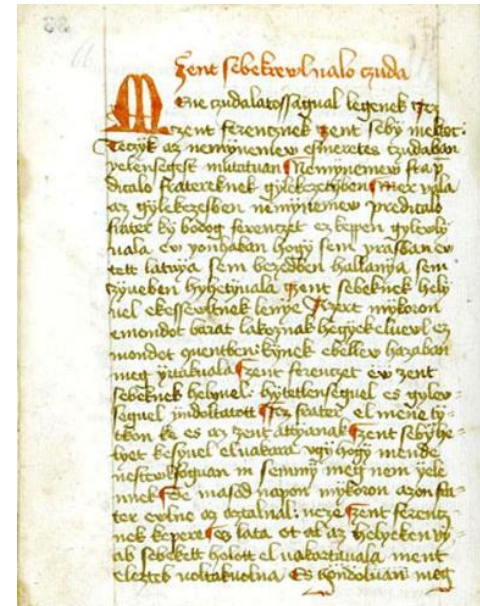 Zent sebekrewl ualo czuda
Mene czudalatossagual legenek ez
zent ferencznek zent seby meltoc:
Teczyk az nemynemew esmeretes czudaban
yelensegest mutatuan Nemynemew
dicalo fratereknek gylekezetyben mer vala
az gylekezesben nemynemew predicalo
frater ky bodog ferenczet ez keppen gylewly
uala ew yonhaban hogy sem yrasban ew
tett latnya sem bezedben hallanya sem
zyueben hyhetyuala zent sebeknek hely
uel ekessewltnek lennye Ezert mykoron
emondot barat hegyek eluewl ez
mondot kynek ebellew hazaban
meg yrtakuala zent ferenczet ew zent
sebeknek helyuel: hytetlenseguel es gylew=
seguel yndoltatott Ez frater el mene ty=
tkon ke es az zent attyanak zent seby he=
lyet kesyuel eluakara vgy hogy mende
in semmy meg nem yele
nnek De masod napon mykoron azon fra=
ter ewlne az aztalnal: neze zent ferencz=
nek kepere es lata ot al az helyeken vy=
ab sebekett holott el uakartauala ment
elezteb uoltakuolna Es gondoluan meg